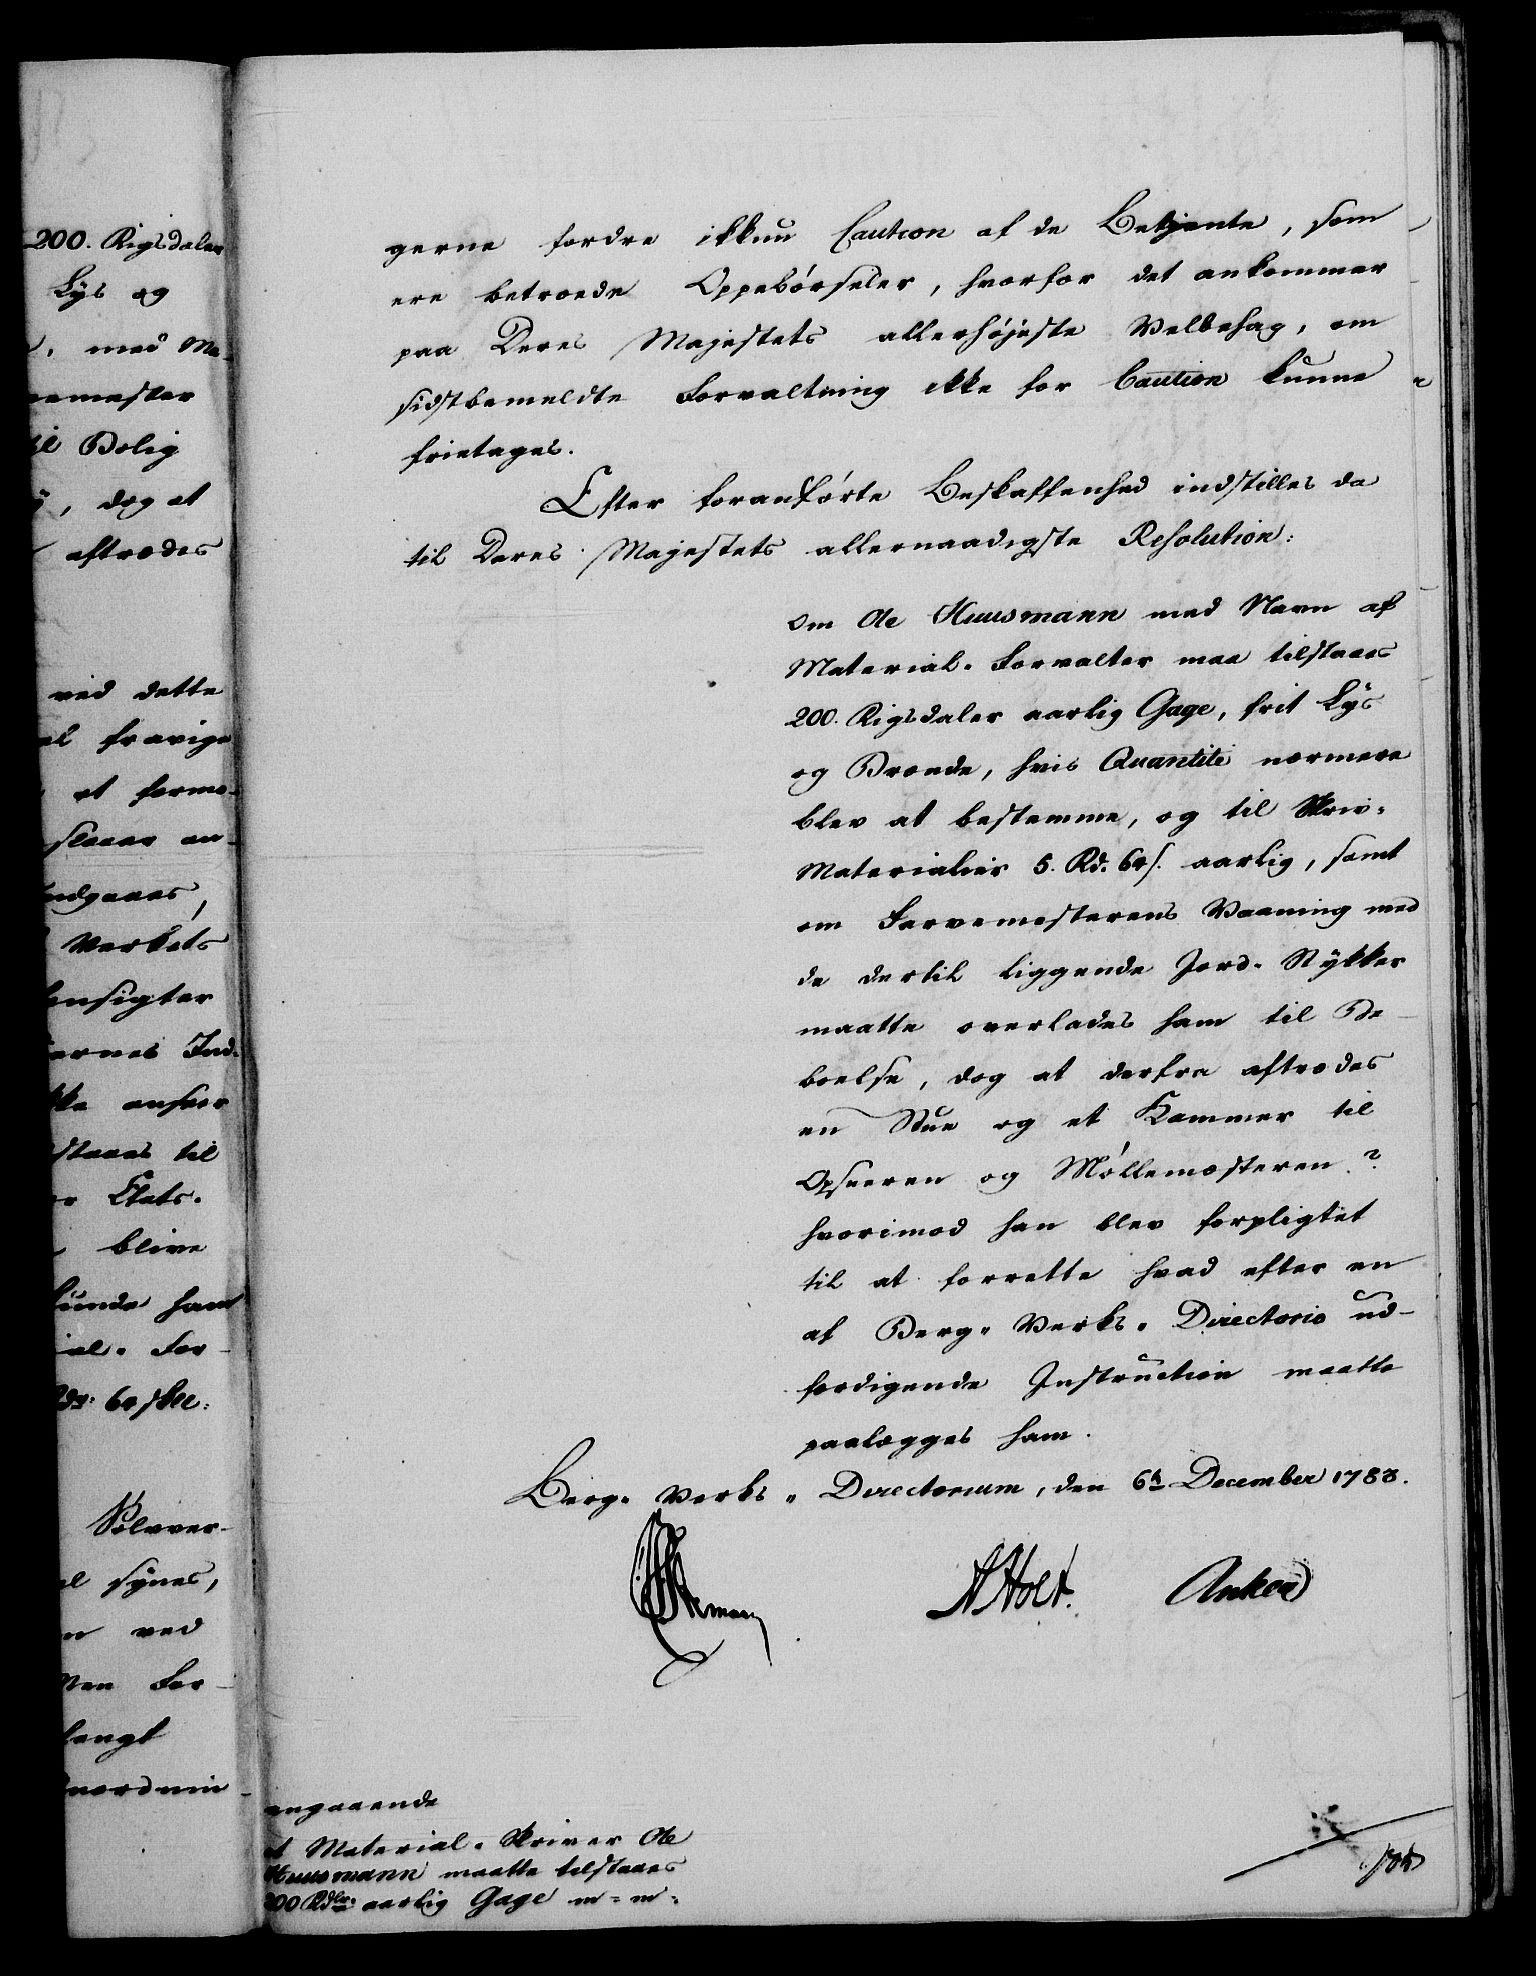 200. Rigsdaler
Lÿs og
med Ma-
vemester
til Bolig
, dog at
aftrædes
ved dette
fravige
et forme-
slaaer an-
indgaaes,
Verkets
hensigter
ernes Ind-
ke anseer
staaes til
Etats-
blive
kunde ham
ial- For-
Rdr. 64 skll:
Sølvver-
el sÿnes,
n ved
den For-
langt
nordnin-
gerne fordre ikkun Caution af de Betjente, som
ere betroede Oppebørseler, hvorfor det ankommer
paa Deres Majestets allerhøjeste Velbehag, om
sidstbemeldte Forvaltning ikke for Caution kunne
fritages.
Efter foranførte Beskaffenhed indstilles da
til Deres Majestets allernaadigste Resolution:
om Ole Huusmann med Navn af
Material- Forvalter maa tilstaaes
200. Rigsdaler aarlig Gage, frit Lÿs
og Brænde, hvis Quantite nærmere
blev at bestemme, og til Skriv-
Materialier 5. Rd. 64 s. aarlig, samt
om Farvemesterens Vaaning med
de dertil liggende Jord- Stÿkker
maatte overlades ham til Be-
boelse, dog at derfra aftrædes
en Stue og et Kammer til
Opseeren og Møllemesteren?
hvorimod han blev forpligtet
til at forrette hvad efter en
af Berg- Verks- Directorio ud-
færdigende Instruction maatte
paalægges ham.
Berg- Verks- Directorium, den 6t December 1788.
A Holt. Anker
angaaende
at Material- Skriver Ole
Huusmann maatte tilstaaes
200 Rdlr. aarlig Gage m: m: